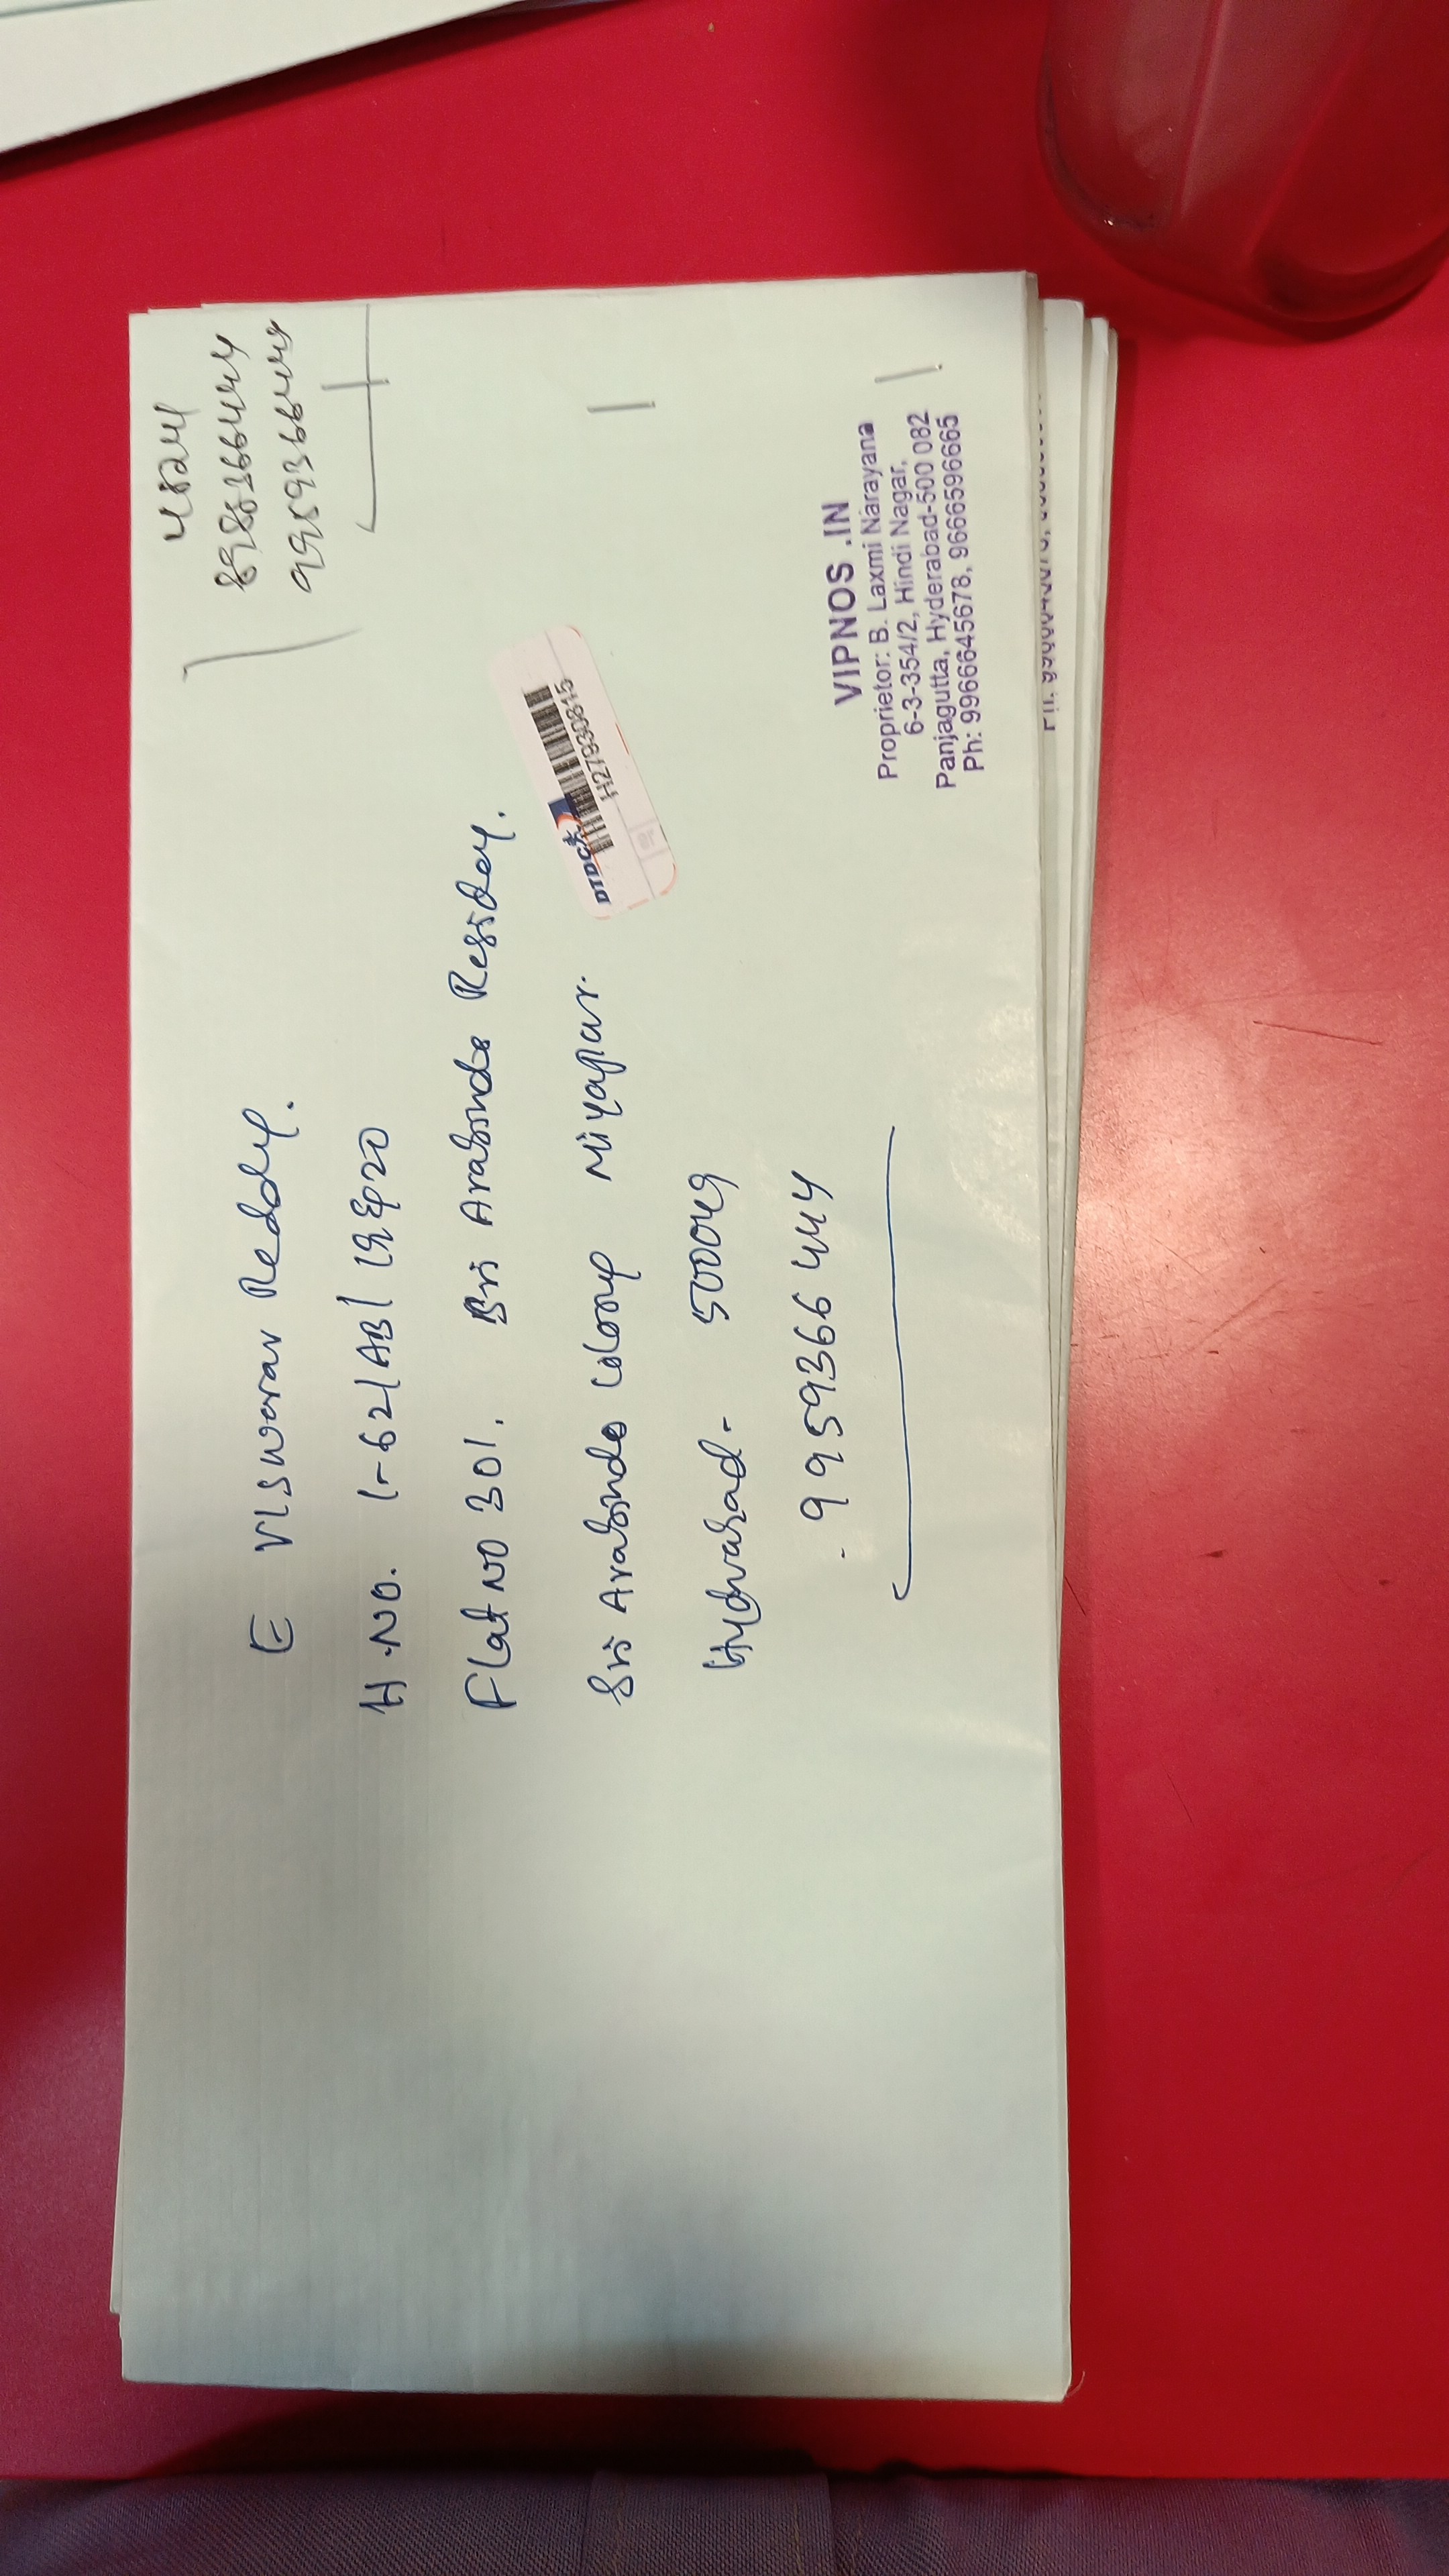 E Viswavar Reddy.
H.No. 1-62/AB/
Flat No 301. Sri Arabindo
Sri Arabindo Colony Miyapur.
Hyderabad- 500049
9959366444
9959366444
DTDC
H27930815
VIPNOS .IN
Proprietor: B. Laxmi Narayana
6-3-354/2, Hindi Nagar,
Panjagutta, Hyderabad-500 082
Ph: 9966645678, 9666596665